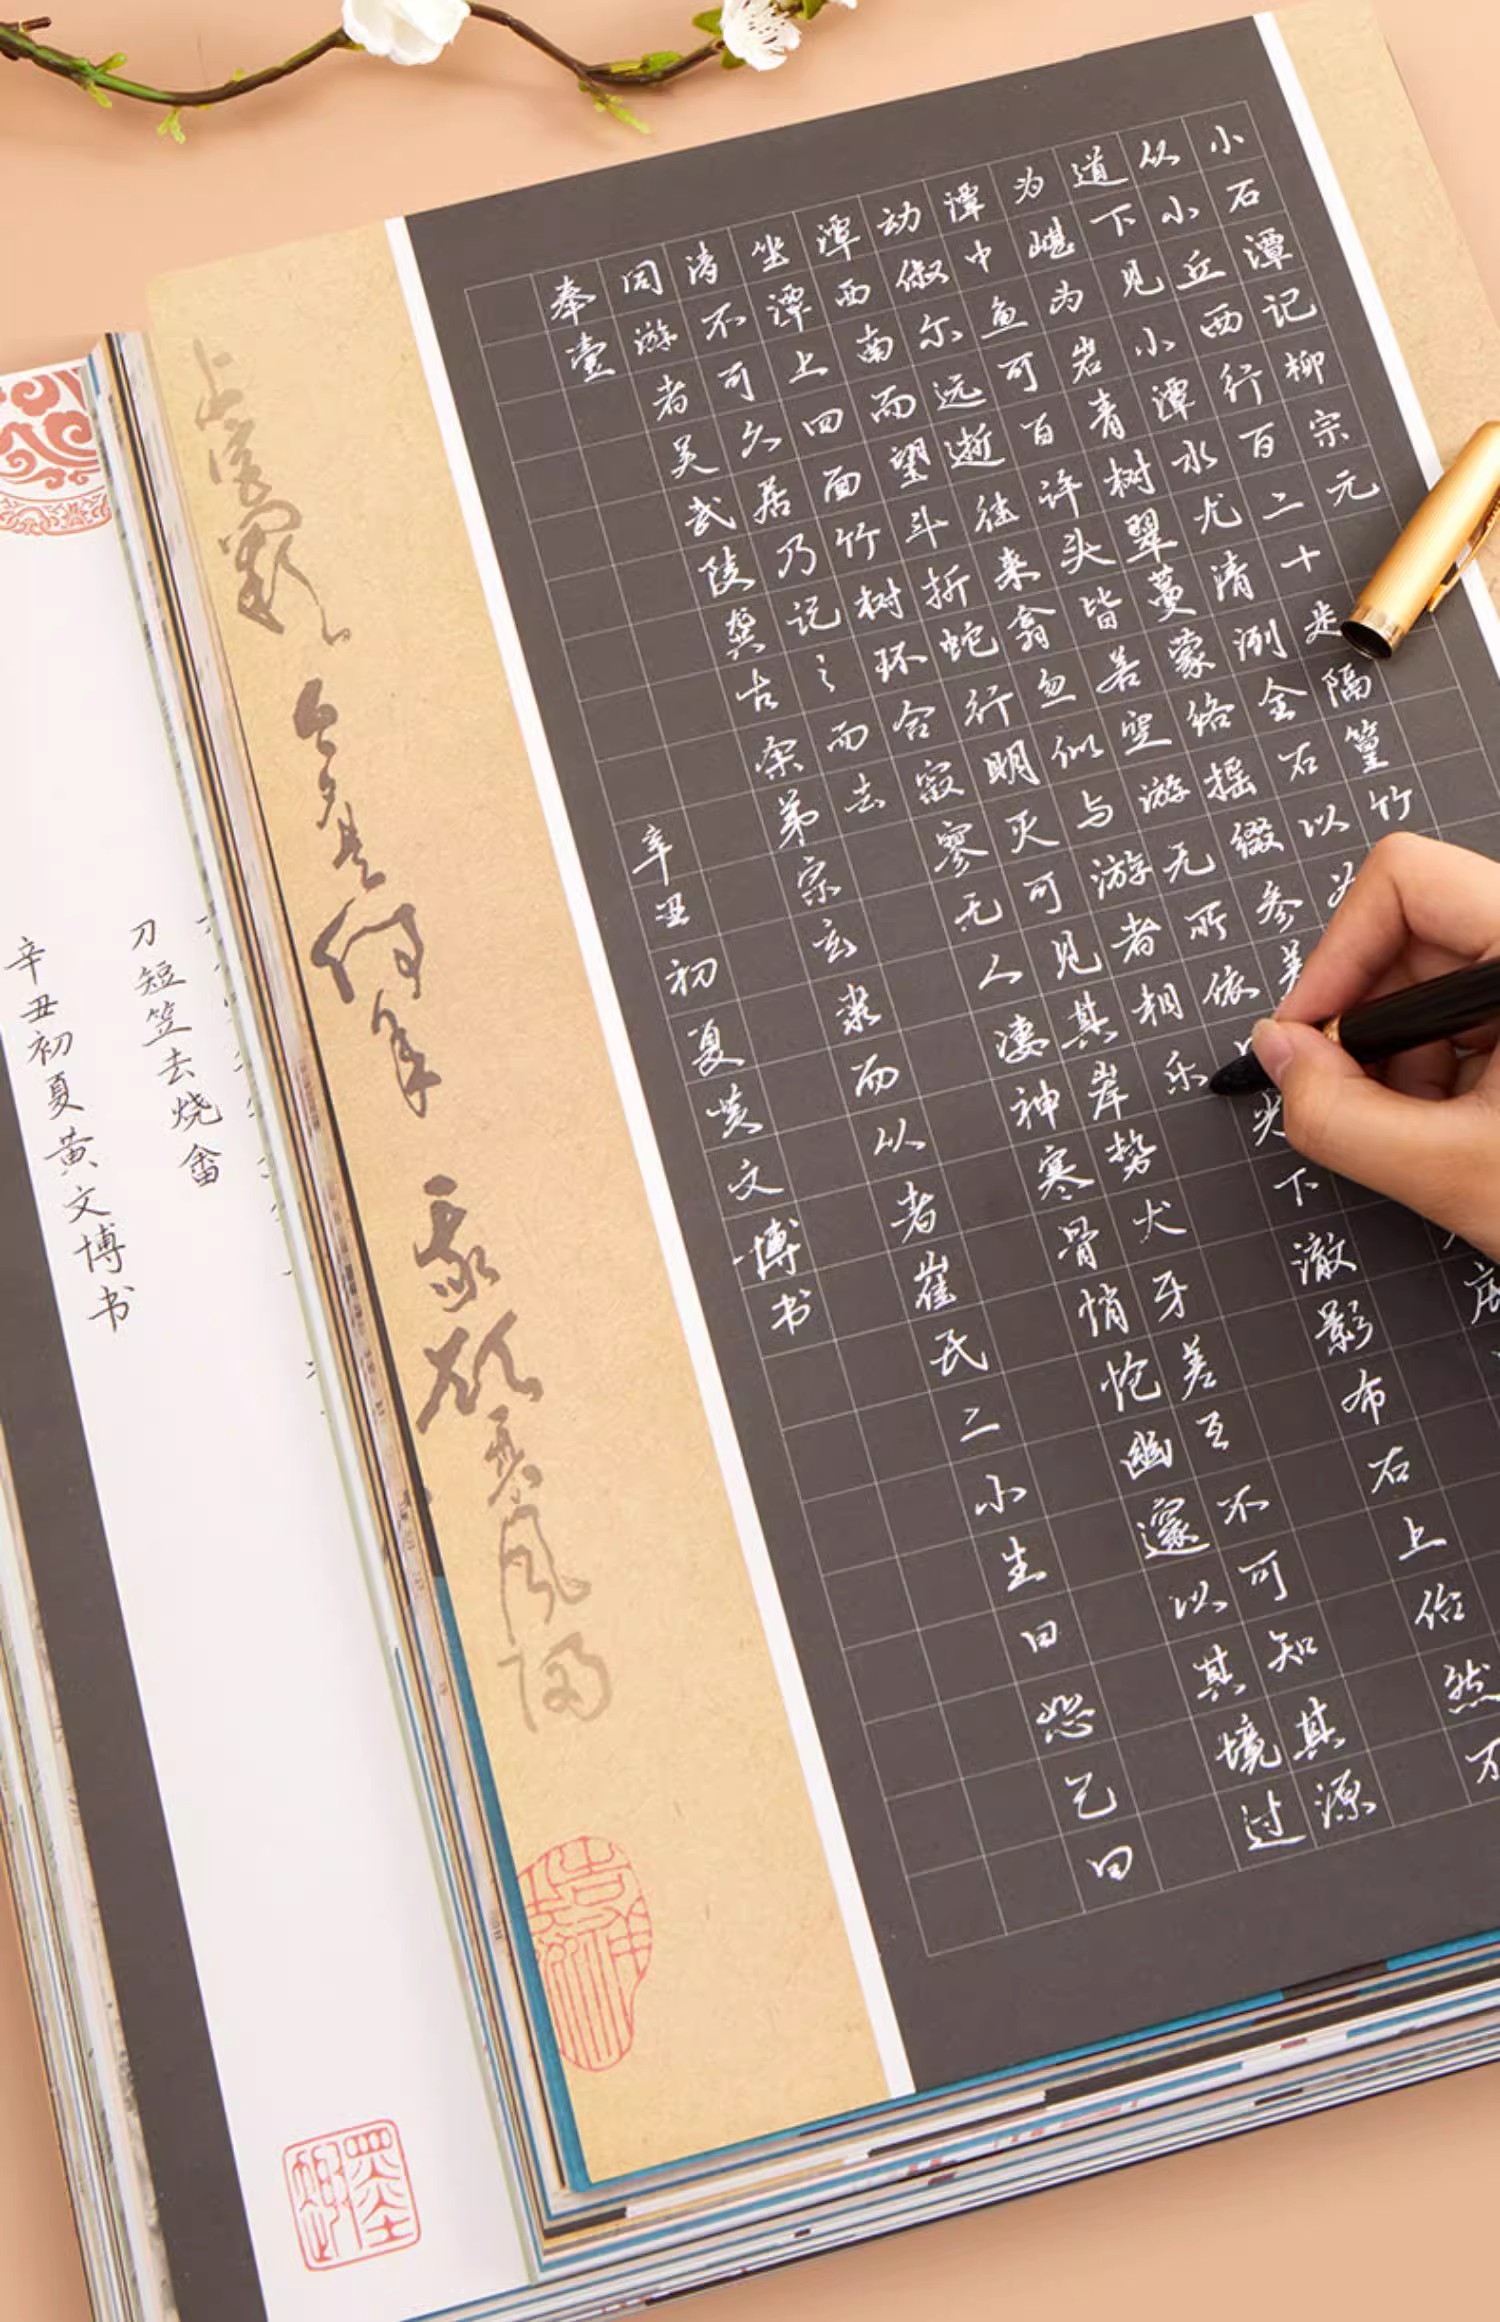 小石潭记柳宗元
从小丘西行百二十步隔篁竹
道下见小潭水尤清洌全石以为
为嵁为岩青树翠蔓蒙络摇缀参差
潭中鱼可百许头皆若空游无所依日光下澈影布石上佁然不
动俶尔远逝往来翕忽似与游者相乐
潭西南而望斗折蛇行明灭可见其岸势犬牙差互不可知其源
坐潭上四面竹树环合寂寥无人凄神寒骨悄怆幽邃以其境过
清不可久居乃记之而去
同游者吴武陵龚古余弟宗玄隶而从者崔氏二小生曰恕己曰
奉壹
辛丑初夏黄文博书
上宫阙今夕是何年我欲乘风归
刀短笠去烧畲
辛丑初夏黄文博书